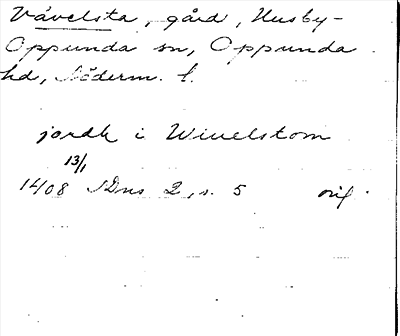 Vävelsta, gård, Husby-
Oppunda sn, Oppunda
hd, Söderm. l.
jordh i Wiuelstom
13/1
1408 SDns 2, s. 5 orig.